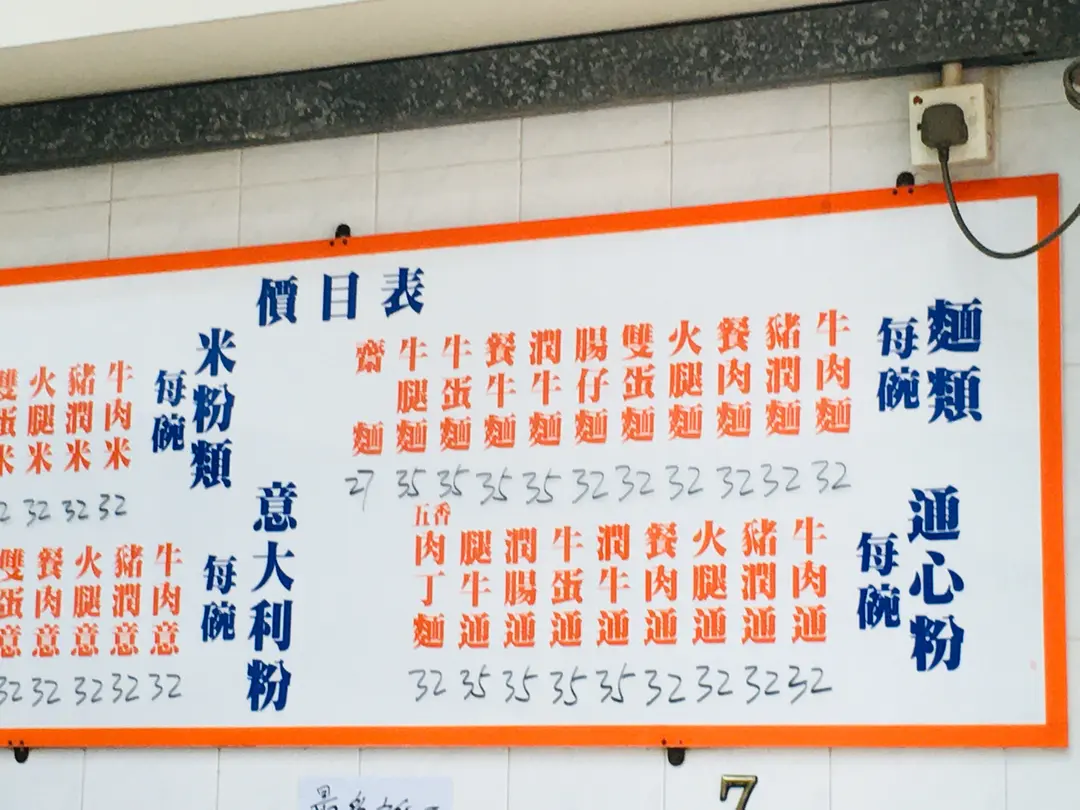 價目表
麵類
每碗
牛肉麵 32
豬潤麵 32
餐肉麵 32
火腿麵 32
雙蛋麵 32
腸仔麵 32
潤牛麵 35
餐牛麵 35
牛蛋麵 35
牛腿麵 35
齋麵 27
通心粉
每碗
牛肉通 32
豬潤通 32
火腿通 32
餐肉通 32
潤牛通 35
牛蛋通 35
潤腸通 35
腿牛通 35
五香肉丁麵 32
米粉類
每碗
牛肉米 32
豬潤米 32
火腿米 32
雙蛋米
意大利粉
每碗
牛肉意 32
豬潤意 32
火腿意 32
餐肉意 32
雙蛋意 32
7